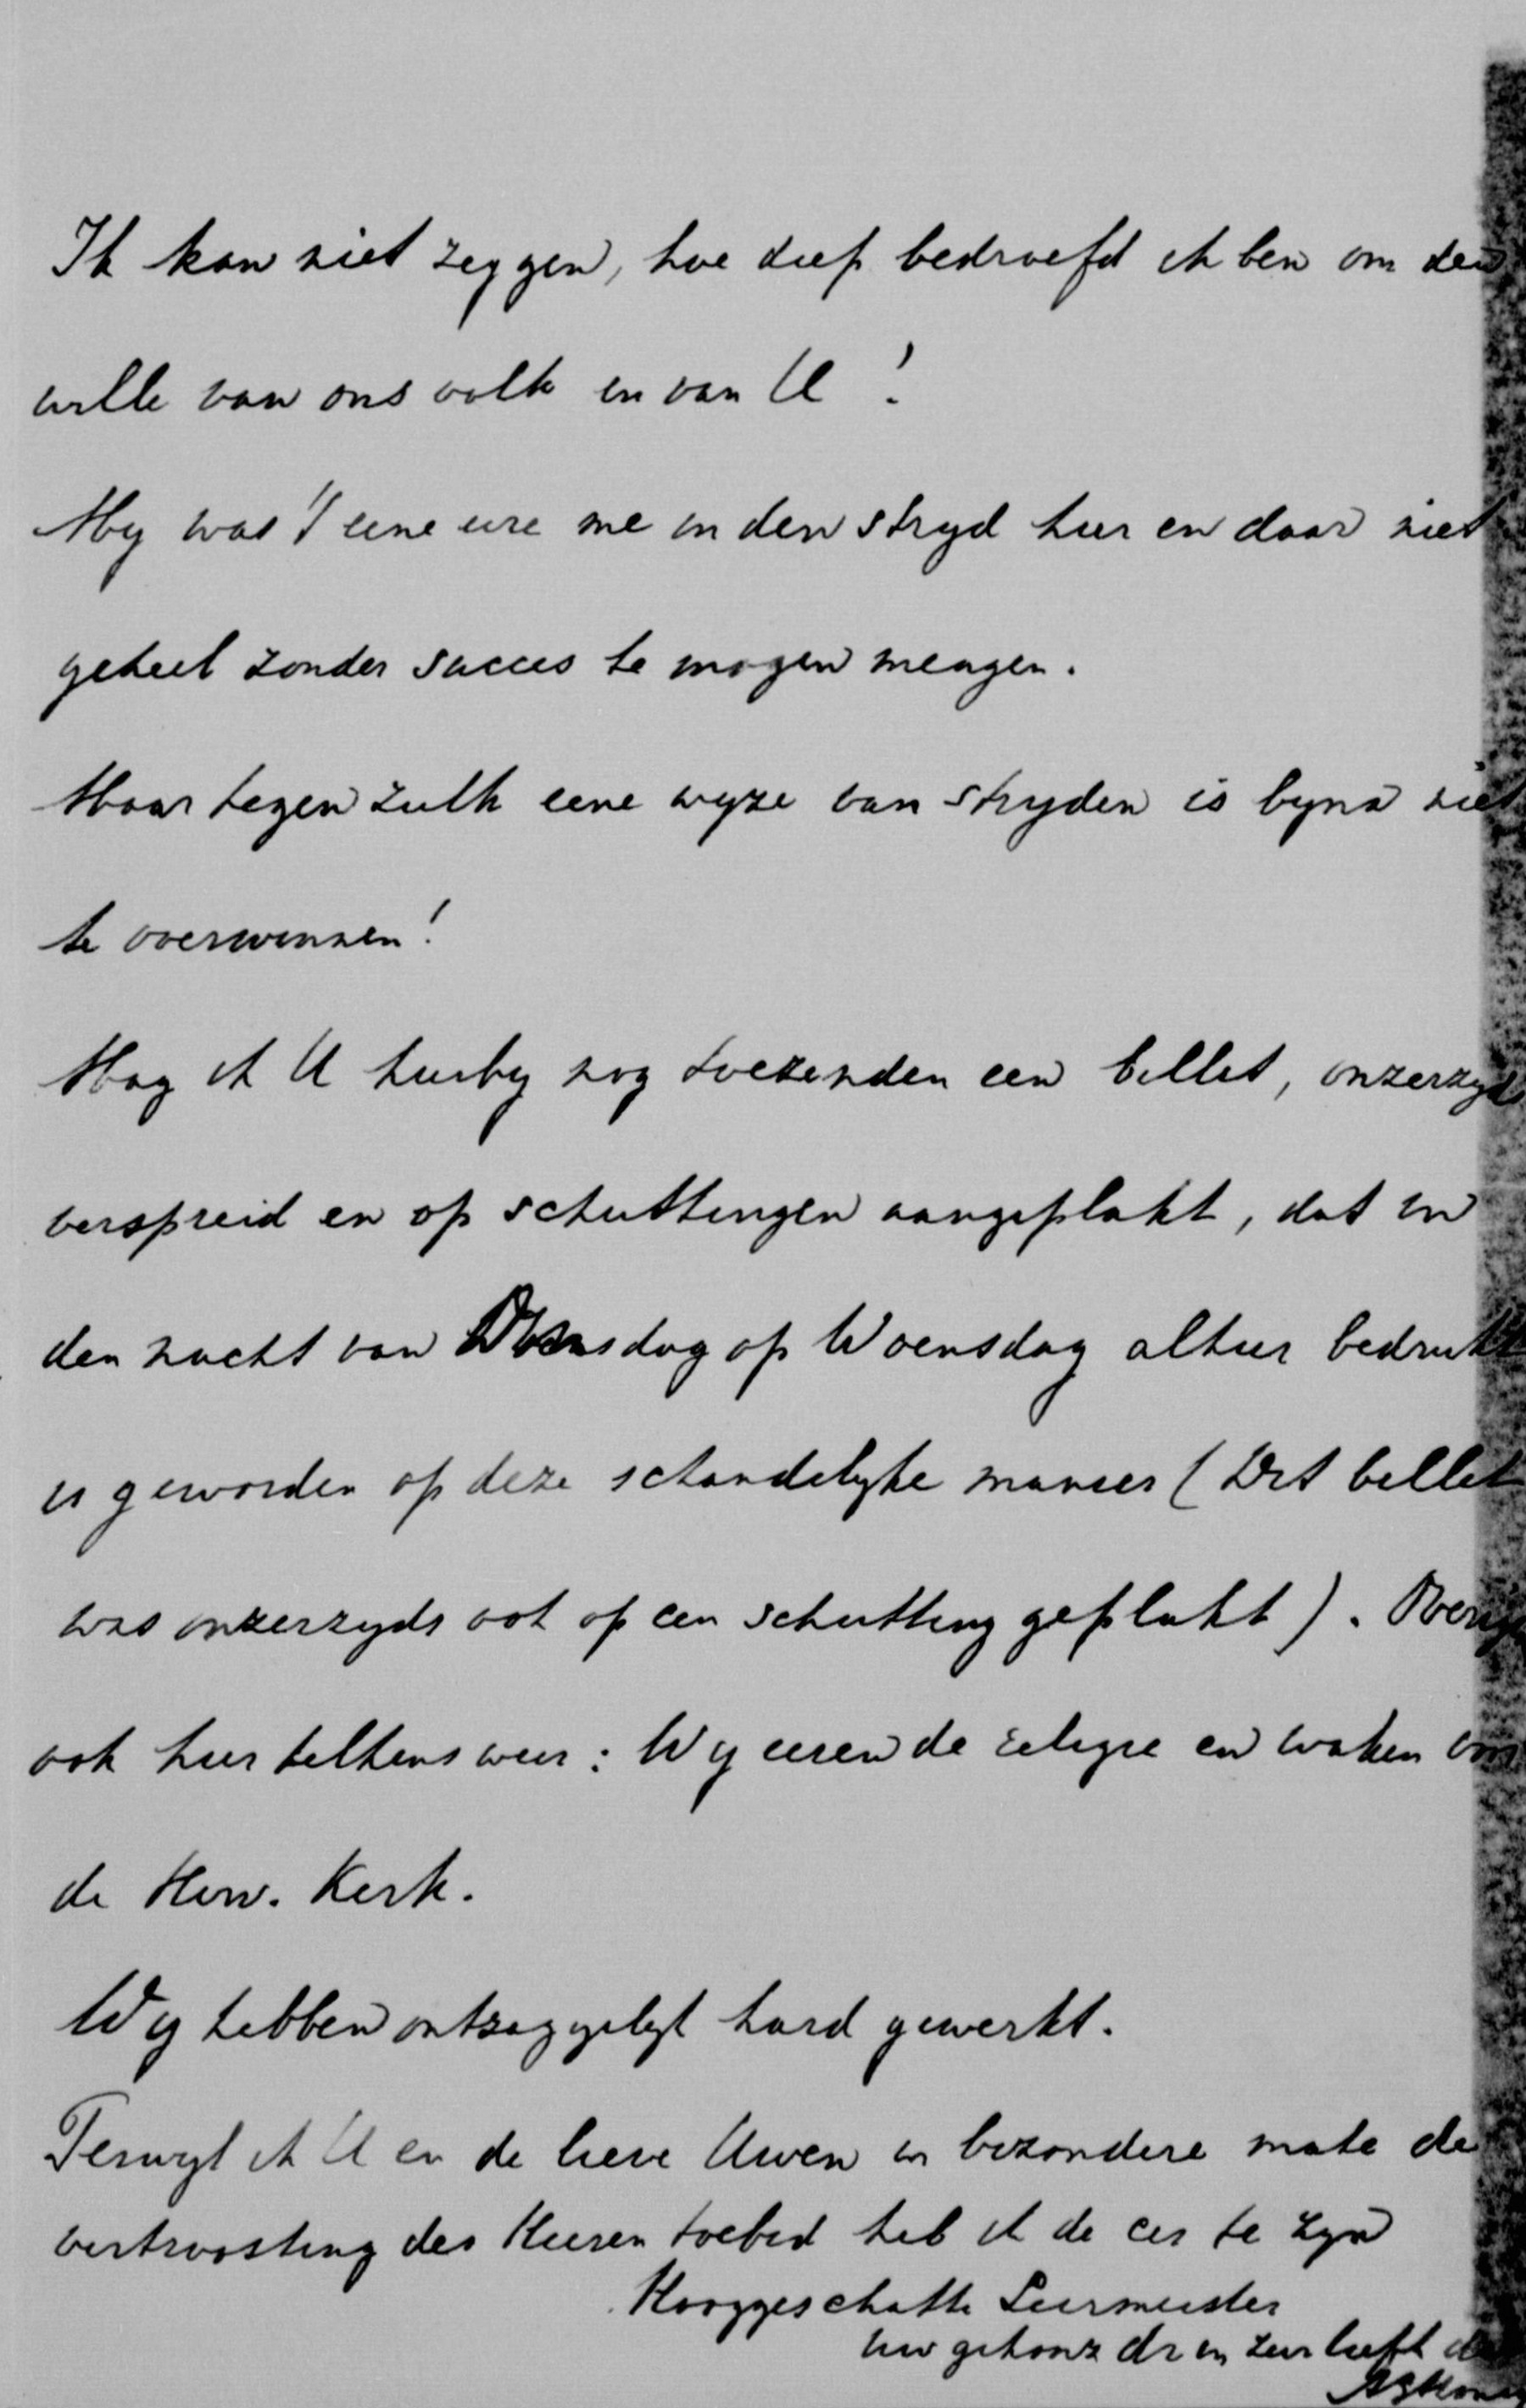 Ik kan niet zeggen, hoe diep bedroefd ik ben om den
wille van ons volk en van U!
My was 't eene eere me in den stryd hier en daar niet
geheel zonder succes te mogen mengen.
Maar tegen zulk eene wyze van stryden is byna niet
te overwinnen!
Mag ik U hierby nog toezenden een billet, onzerzyds
verspreid en op schuttingen aangeplakt, dat in
den nacht van Dinsdag op Woensdag alhier bedrukt
is geworden op deze schandelyke manier (Dit billet
was onzerzyds ook op een schutting geplakt).
ook hier telkens weer: Wy eeren de religie en waken voor
de Herv. Kerk.
Wy hebben ontzaggelyk hard gewerkt.
Terwyl ik U en de lieve Uwen in bizondere mate de
vertroosting des Heeren toebid heb ik de eer te zyn
Hooggeschatte Leermeester
Uw gehoorz dr en zeer liefh